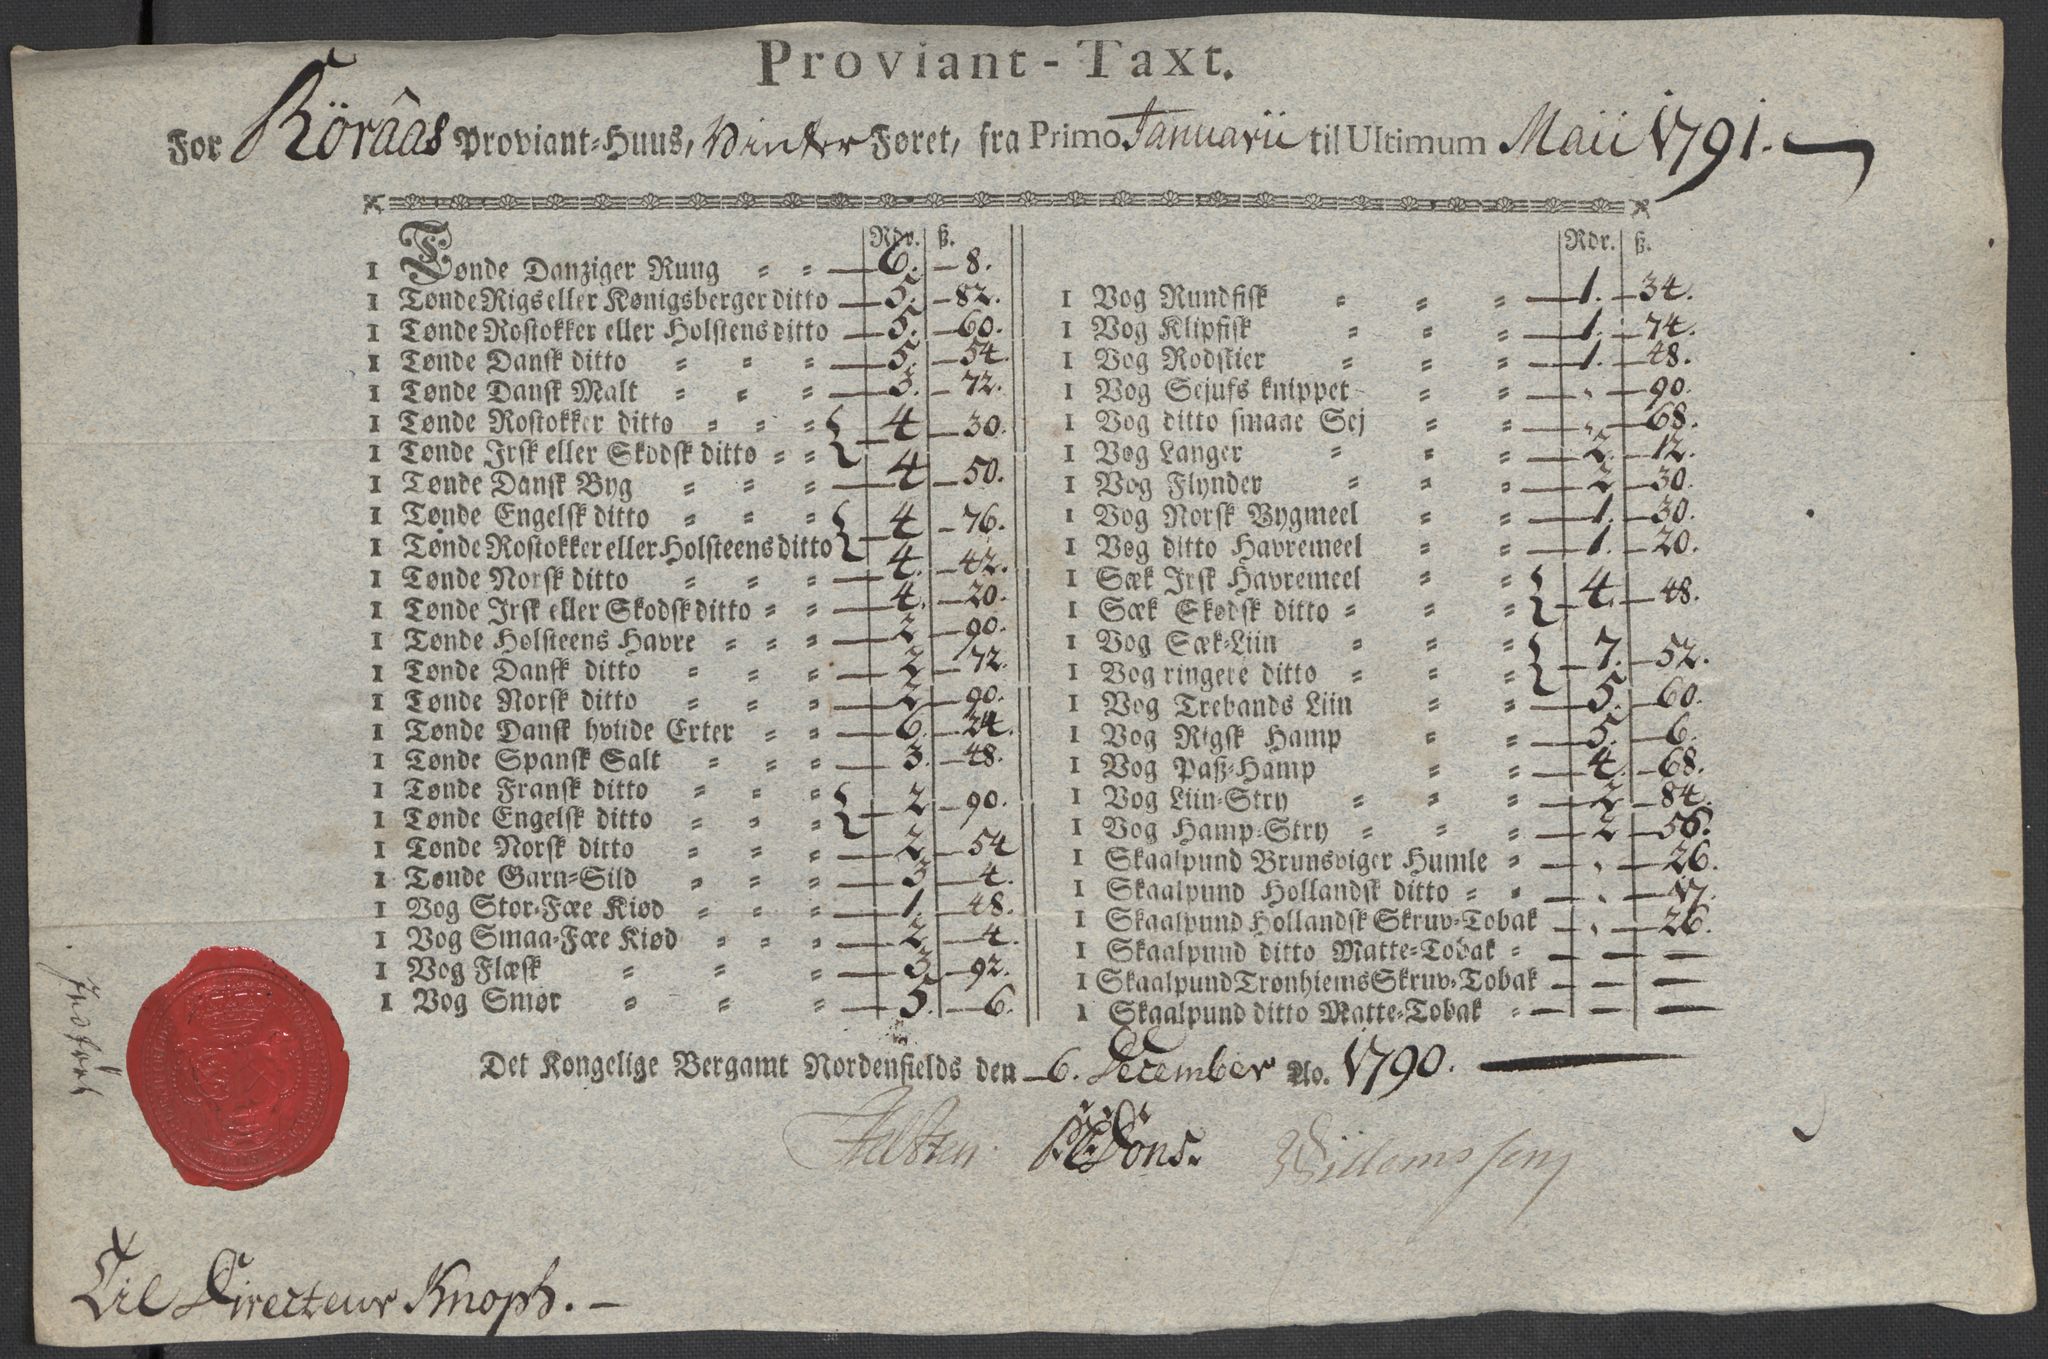 Proviant-Taxt.
For Röraas Proviant-Huus, Vinter Føret, fra Primo Januarii til Ultimum Maii 1791.
Rdr. ß.
1 Tønde Danziger Rung 6. 8.
1 Tønde Rigs eller Kønigsberger ditto 5. 82.
1 Tønde Rostokker eller Holstens ditto 5. 60.
1 Tønde Dansk ditto 5. 54.
1 Tønde Dansk Malt 3. 72.
1 Tønde Rostokker ditto } 4 30.
1 Tønde Irsk eller Skodsk ditto
1 Tønde Dansk Byg 4 50.
1 Tønde Engelsk ditto } 4 76.
1 Tønde Rostokker eller Holsteens ditto
1 Tønde Norsk ditto 4. 42.
1 Tønde Irsk eller Skodsk ditto 4. 20.
1 Tønde Holsteens Havre 2 90.
1 Tønde Dansk ditto 2 72.
1 Tønde Norsk ditto 2 90.
1 Tønde Dansk hvide Erter 6. 24.
1 Tønde Spansk Salt 3. 48.
1 Tønde Fransk ditto } 2 90.
1 Tønde Engelsk ditto
1 Tønde Norsk ditto 2 54
1 Tønde Garn-Sild 3 4.
1 Vog Stor-Fæe Kiød 1. 48.
1 Vog Smaa-Fæe Kiød 2 4.
1 Vog Flæsk 3. 92.
1 Vog Smør 5. 6.
Rdr. ß.
1 Vog Rundfisk 1. 34.
1 Vog Klipfisk 1. 74.
1 Vog Rodskier 1. 48.
1 Vog Sejufs knippet " 90.
1 Vog ditto smaae Sej " 68.
1 Vog Langer 2. 12.
1 Vog Flynder 2 30.
1 Vog Norsk Bygmeel 1. 30.
1 Vog ditto Havremeel 1. 20.
1 Sæk Irsk Havremeel } 4. 48.
1 Sæk Skodsk ditto
1 Vog Sæk-Liin } 7. 52.
1 Vog ringere ditto
1 Vog Trebands Liin 5. 60.
1 Vog Rigsk Hamp 5. 6.
1 Vog Paß-Hamp 4. 68.
1 Vog Liin-Stry 2 84.
1 Vog Hamp-Stry 2 56.
1 Skaalpund Brunsviger Humle " 26.
1 Skaalpund Hollandsk ditto " 17.
1 Skaalpund Hollandsk Skruv-Tobak " 26.
1 Skaalpund ditto Matte-Tobak — —
1 Skaalpund Tronhiems Skruv-Tobak — —
1 Skaalpund ditto Matte-Tobak — —
Det Kongelige Bergamt Nordenfields den 6. December Ao. 1790.
Dons. Willemssen
Til Directeur Knoph.